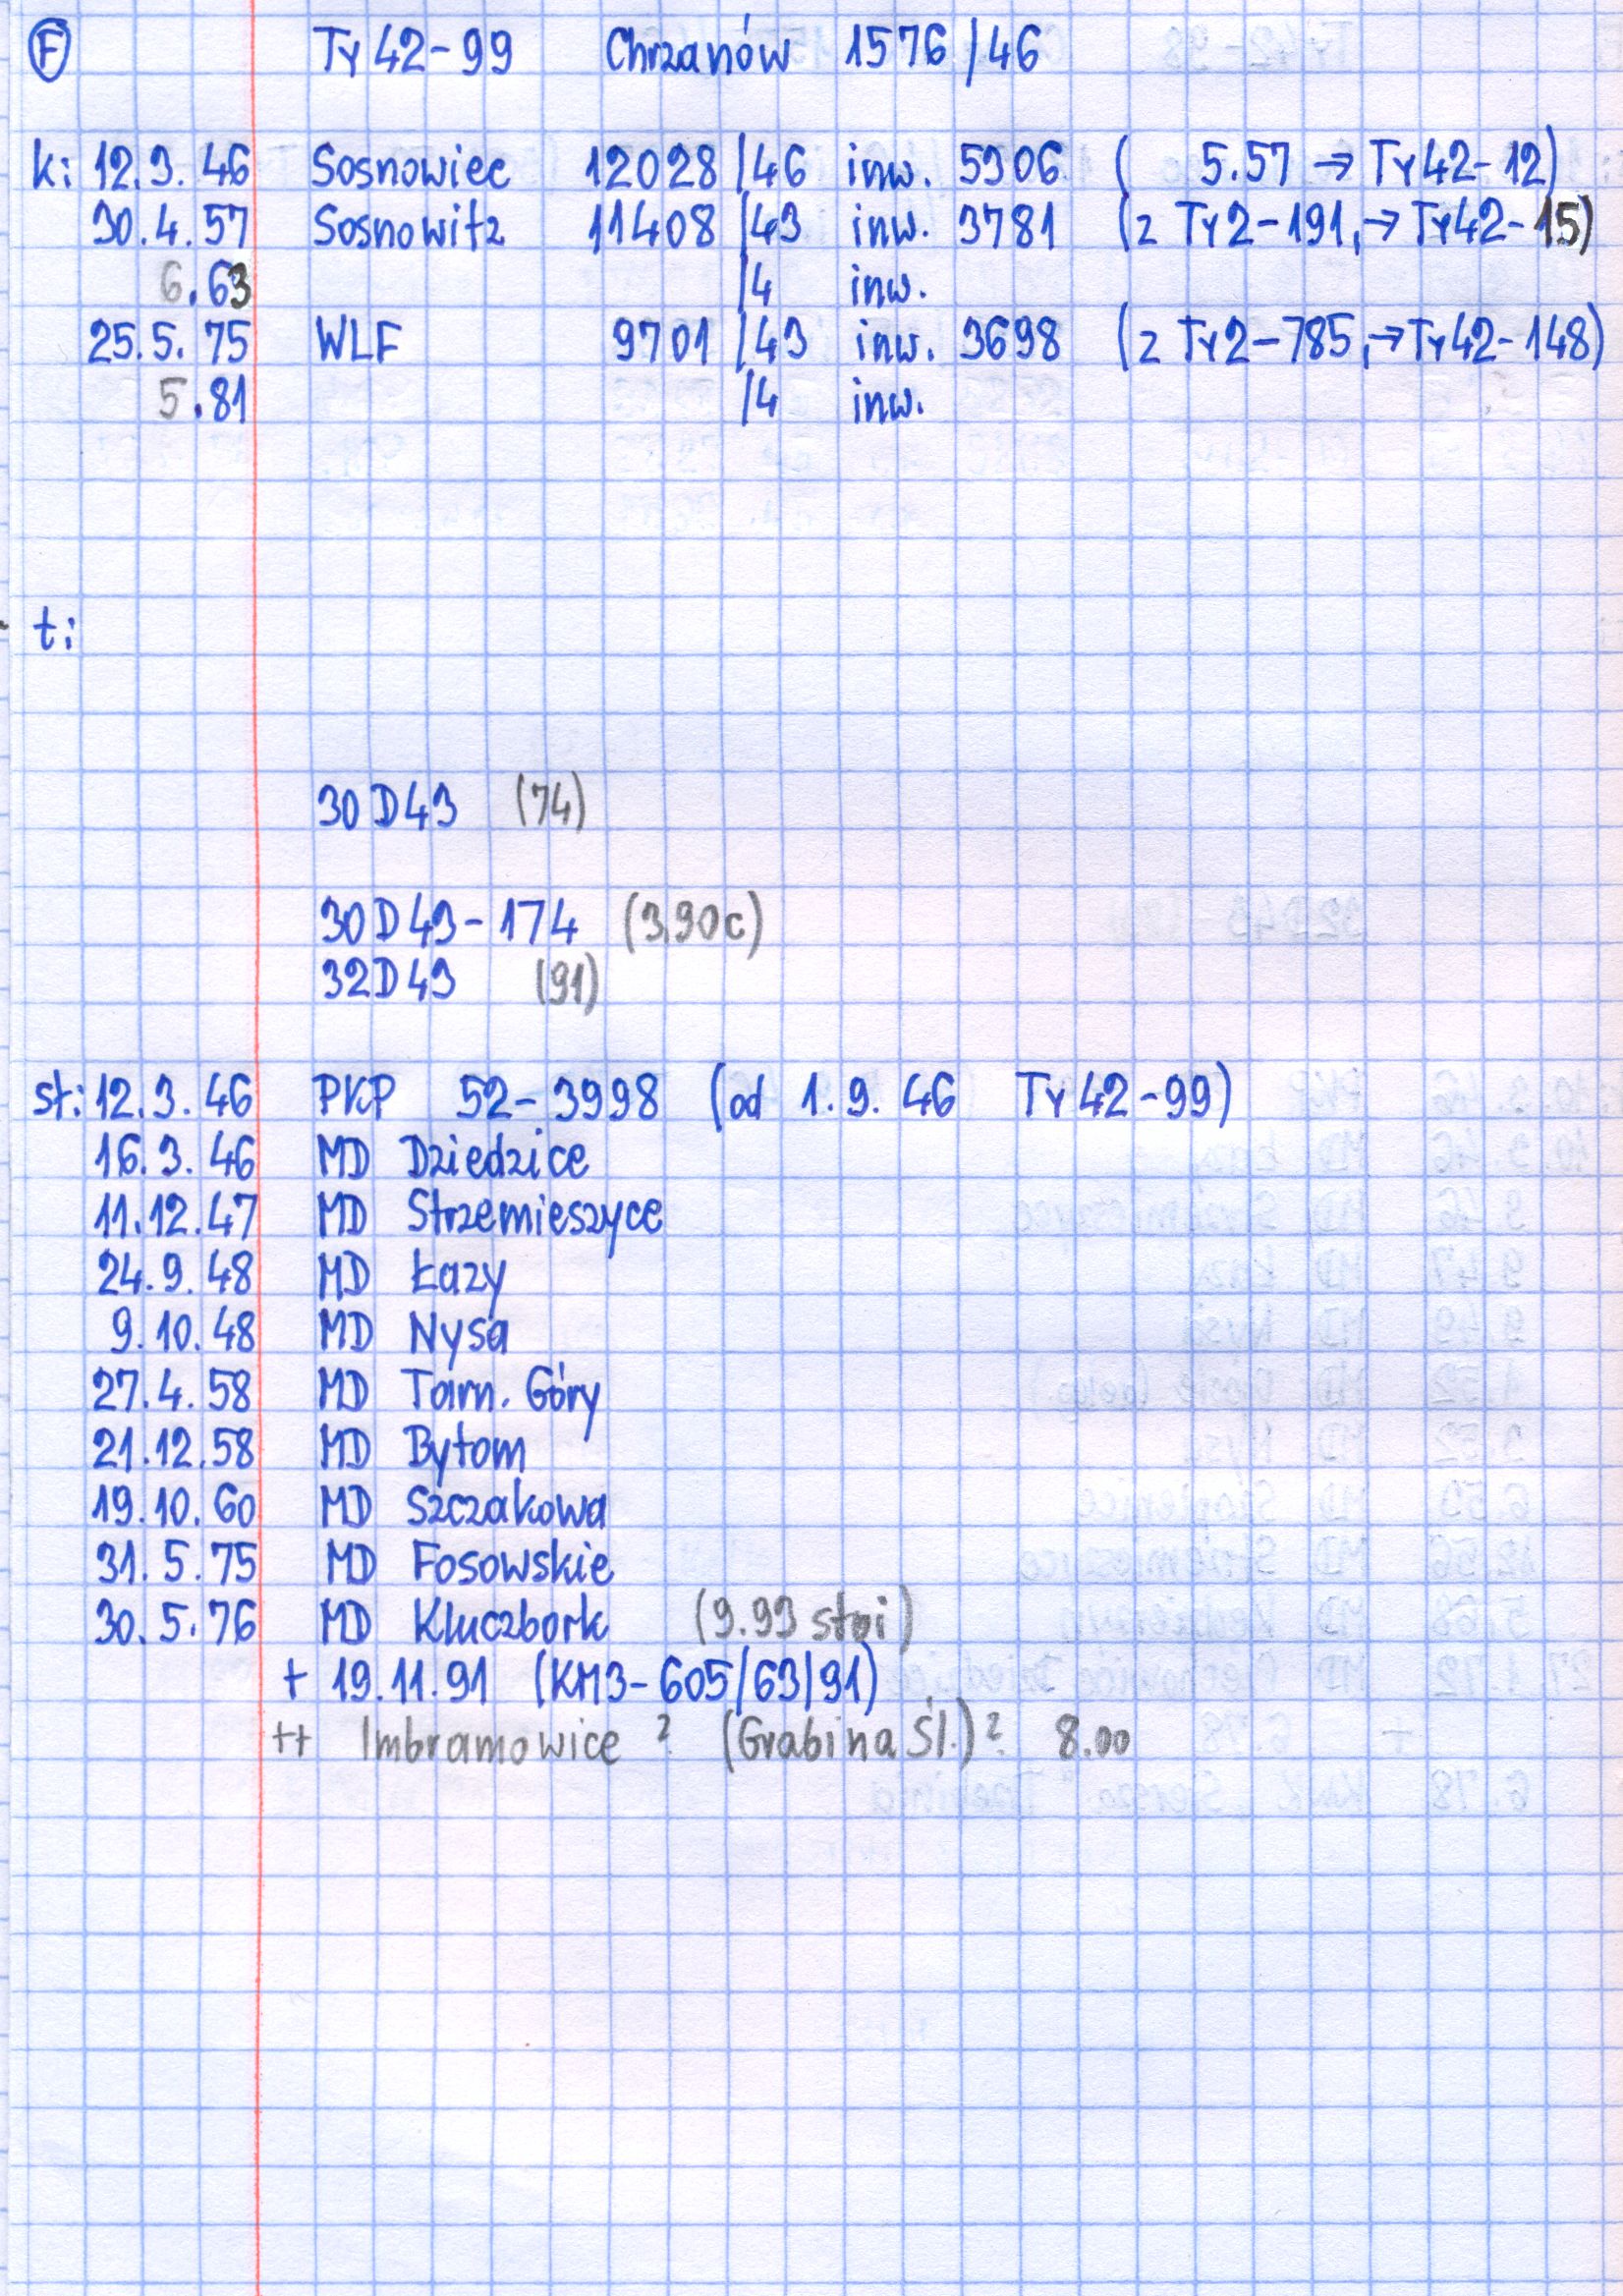 F Ty42-99 Chrzanów 1576/46
k: 12.3.46 Sosnowiec 12028/46 inw. 5906 ( 5.57 → Ty42-12)
30.4.57 Sosnowitz 11408/43 inw. 3781 (z Ty2-191, → Ty42-15)
6.63 /4 inw.
25.5.75 WLF 9701/43 inw. 3698 (z Ty2-785, → Ty42-148)
5.81 /4 inw.
t:
30D43 (74)
30D43-174 (3.90c)
32D43 (91)
st: 12.3.46 PKP 52-3998 (od 1.9.46 Ty42-99)
16.3.46 MD Dziedzice
11.12.47 MD Strzemieszyce
24.9.48 MD Łazy
9.10.48 MD Nysa
27.4.58 MD Tarn. Góry
21.12.58 MD Bytom
19.10.60 MD Szczakowa
31.5.75 MD Fosowskie
30.5.76 MD Kluczbork (9.93 stoi)
+ 19.11.91 (KM3-605/63/91)
++ Imbramowice ? (Grabina Śl.) ? 8.00